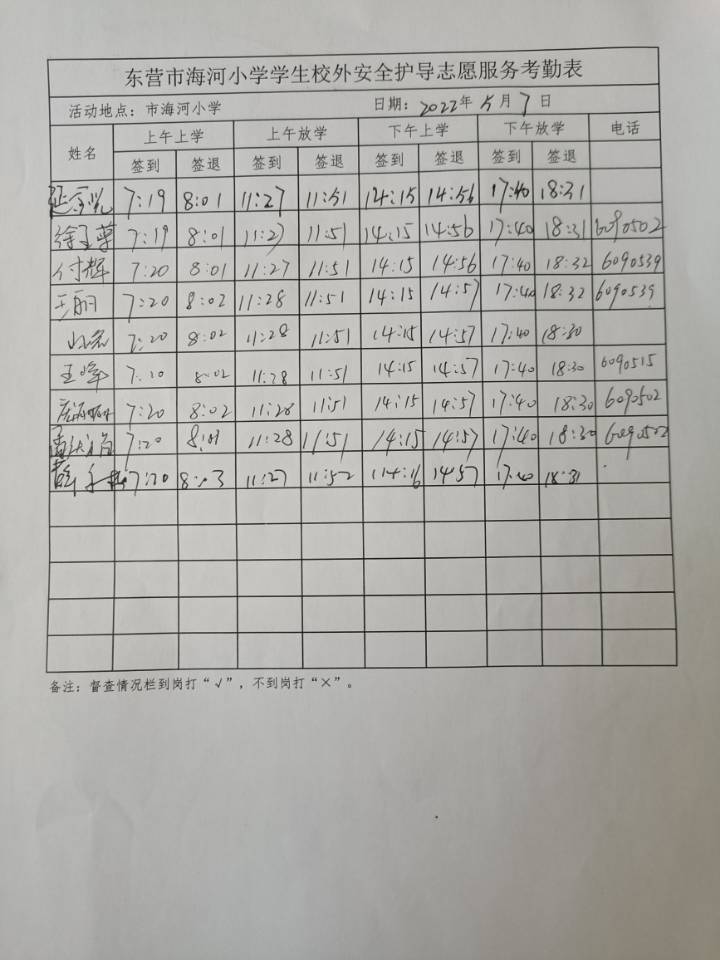 东营市海河小学学生校外安全护导志愿服务考勤表
活动地点：市海河小学 日期：2022年5月7日
姓名 上午上学 上午放学 下午上学 下午放学 电话
签到 签退 签到 签退 签到 签退 签到 签退
7:19 8:01 11:27 11:51 14:15 14:56 17:40 18:31
7:19 8:01 11:27 11:51 14:15 14:56 17:40 18:31 6090502
付辉 7:20 8:01 11:27 11:51 14:15 14:56 17:40 18:32 6090539
王丽 7:20 8:02 11:28 11:51 14:15 14:57 17:40 18:32 6090539
7:20 8:02 11:28 11:51 14:15 14:57 17:40 18:30
王峰 7:20 8:02 11:28 11:51 14:15 14:57 17:40 18:30 6090515
7:20 8:02 11:28 11:51 14:15 14:57 17:40 18:30 6090502
7:20 8:01 11:28 11:51 14:15 14:57 17:40 18:30 6090502
7:20 8:03 11:27 11:52 14:16 14:57 17:40 18:31
备注：督查情况栏到岗打“√”，不到岗打“×”。